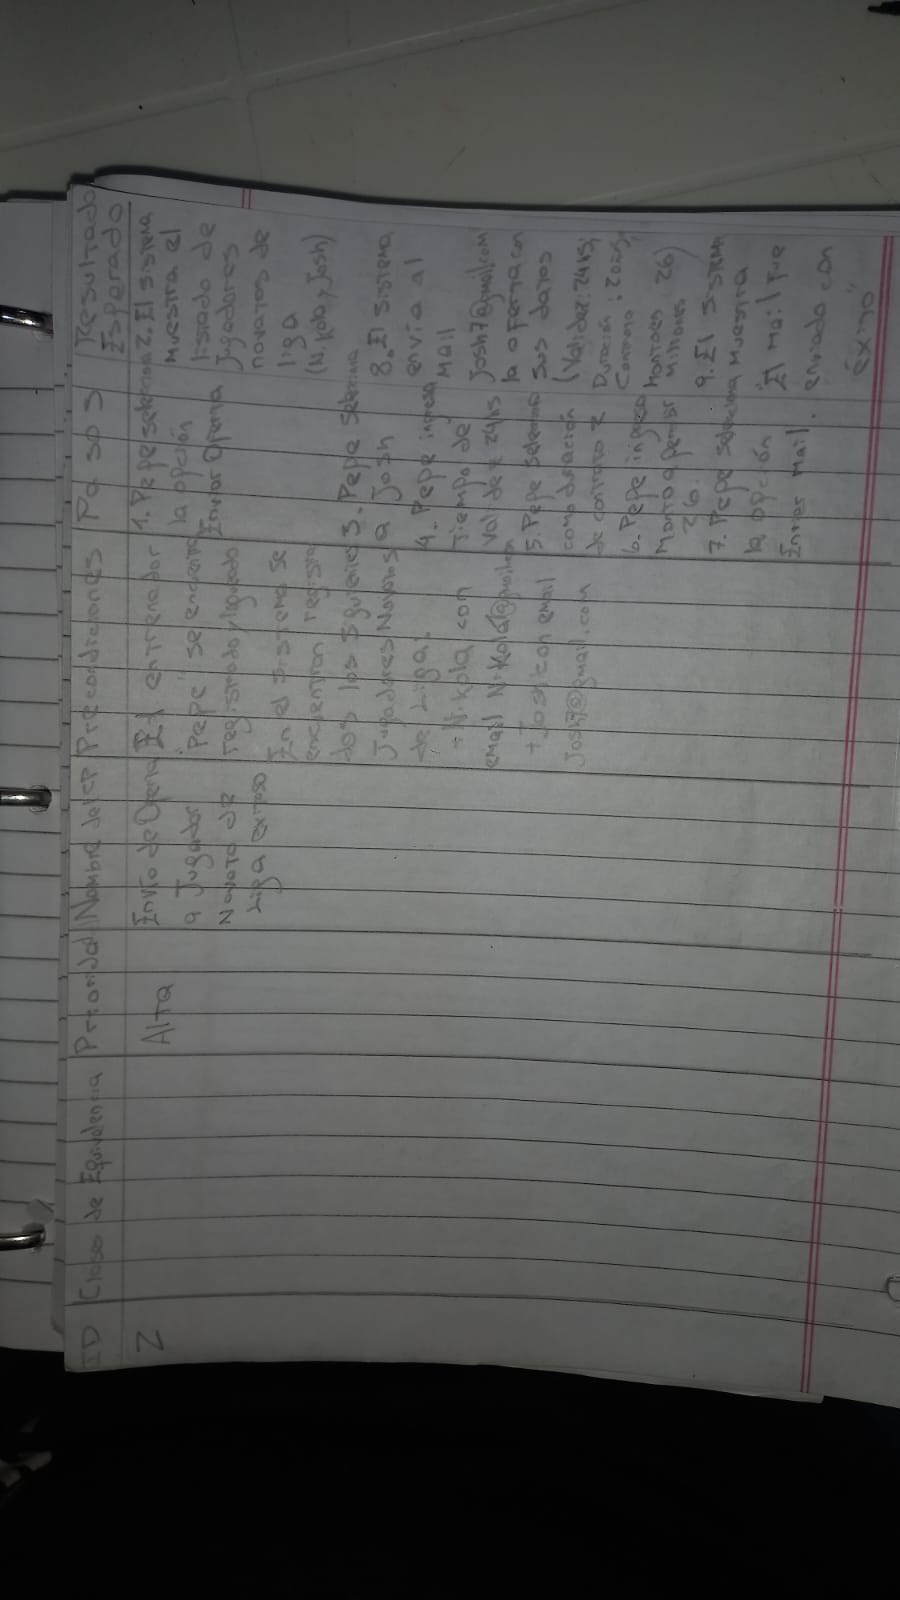 ID
Clases de Equivalencia
Prioridad
Nombre del CP
Precondiciones
Pasos
Resultado
Esperado
2
Alta
Envío de Oferta
a Jugador
Novato de
Liga exitoso
El entrenador
"Pepe" se encuentra
registrado y logueado
En el sistema se
encuentran registra
dos los siguientes
Jugadores Novatos
de Liga:
+ Nikola con
email Nikola1@gmail.com
+ Josh con email
Josh7@gmail.com
1. Pepe selecciona
la opción
Enviar Oferta
3. Pepe selecciona
a Josh
4. Pepe ingresa
Tiempo de
Validez 24hs
5. Pepe selecciona
como duración
de contrato 2
6. Pepe ingresa
Monto a percibir
26.
7. Pepe selecciona
la opción
Enviar Mail.
2. El sistema
muestra el
listado de
Jugadores
novatos de
liga
(Nikola y Josh)
8. El sistema
envía al
Mail
Josh7@gmail.com
la oferta con
sus datos
(Validez: 24hs,
Duración: 2 años,
Contrato
millones 26)
9. El sistema
muestra
"El mail fue
enviado con
éxito"